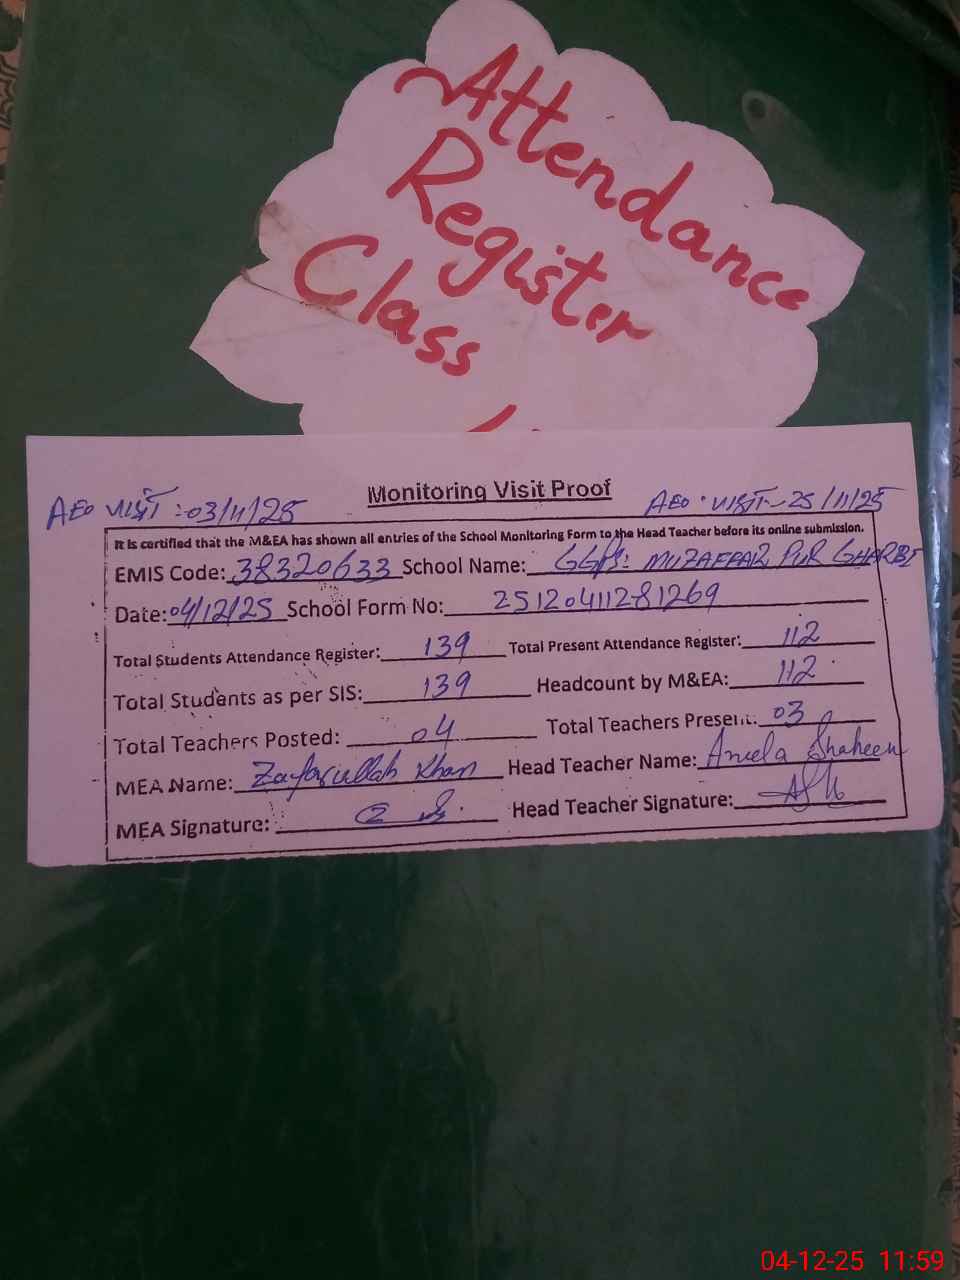 Attendance
Register
Class
Monitoring Visit Proof
AEO VISIT : 03/11/25
AEO VISIT - 25/11/25
It is certified that the M&EA has shown all entries of the School Monitoring Form to the Head Teacher before its online submission.
EMIS Code: 38320633 School Name: GGPS: MUZAFFAR PUR GHARBI
Date: 04/12/25 School Form No: 2512041128 1269
Total Students Attendance Register: 139 Total Present Attendance Register: 112
Total Students as per SIS: 139 Headcount by M&EA: 112
Total Teachers Posted: 04 Total Teachers Present: 03
MEA Name: Zafarullah Khan Head Teacher Name: Aneela Shaheen
MEA Signature: Head Teacher Signature:
04-12-25 11:59